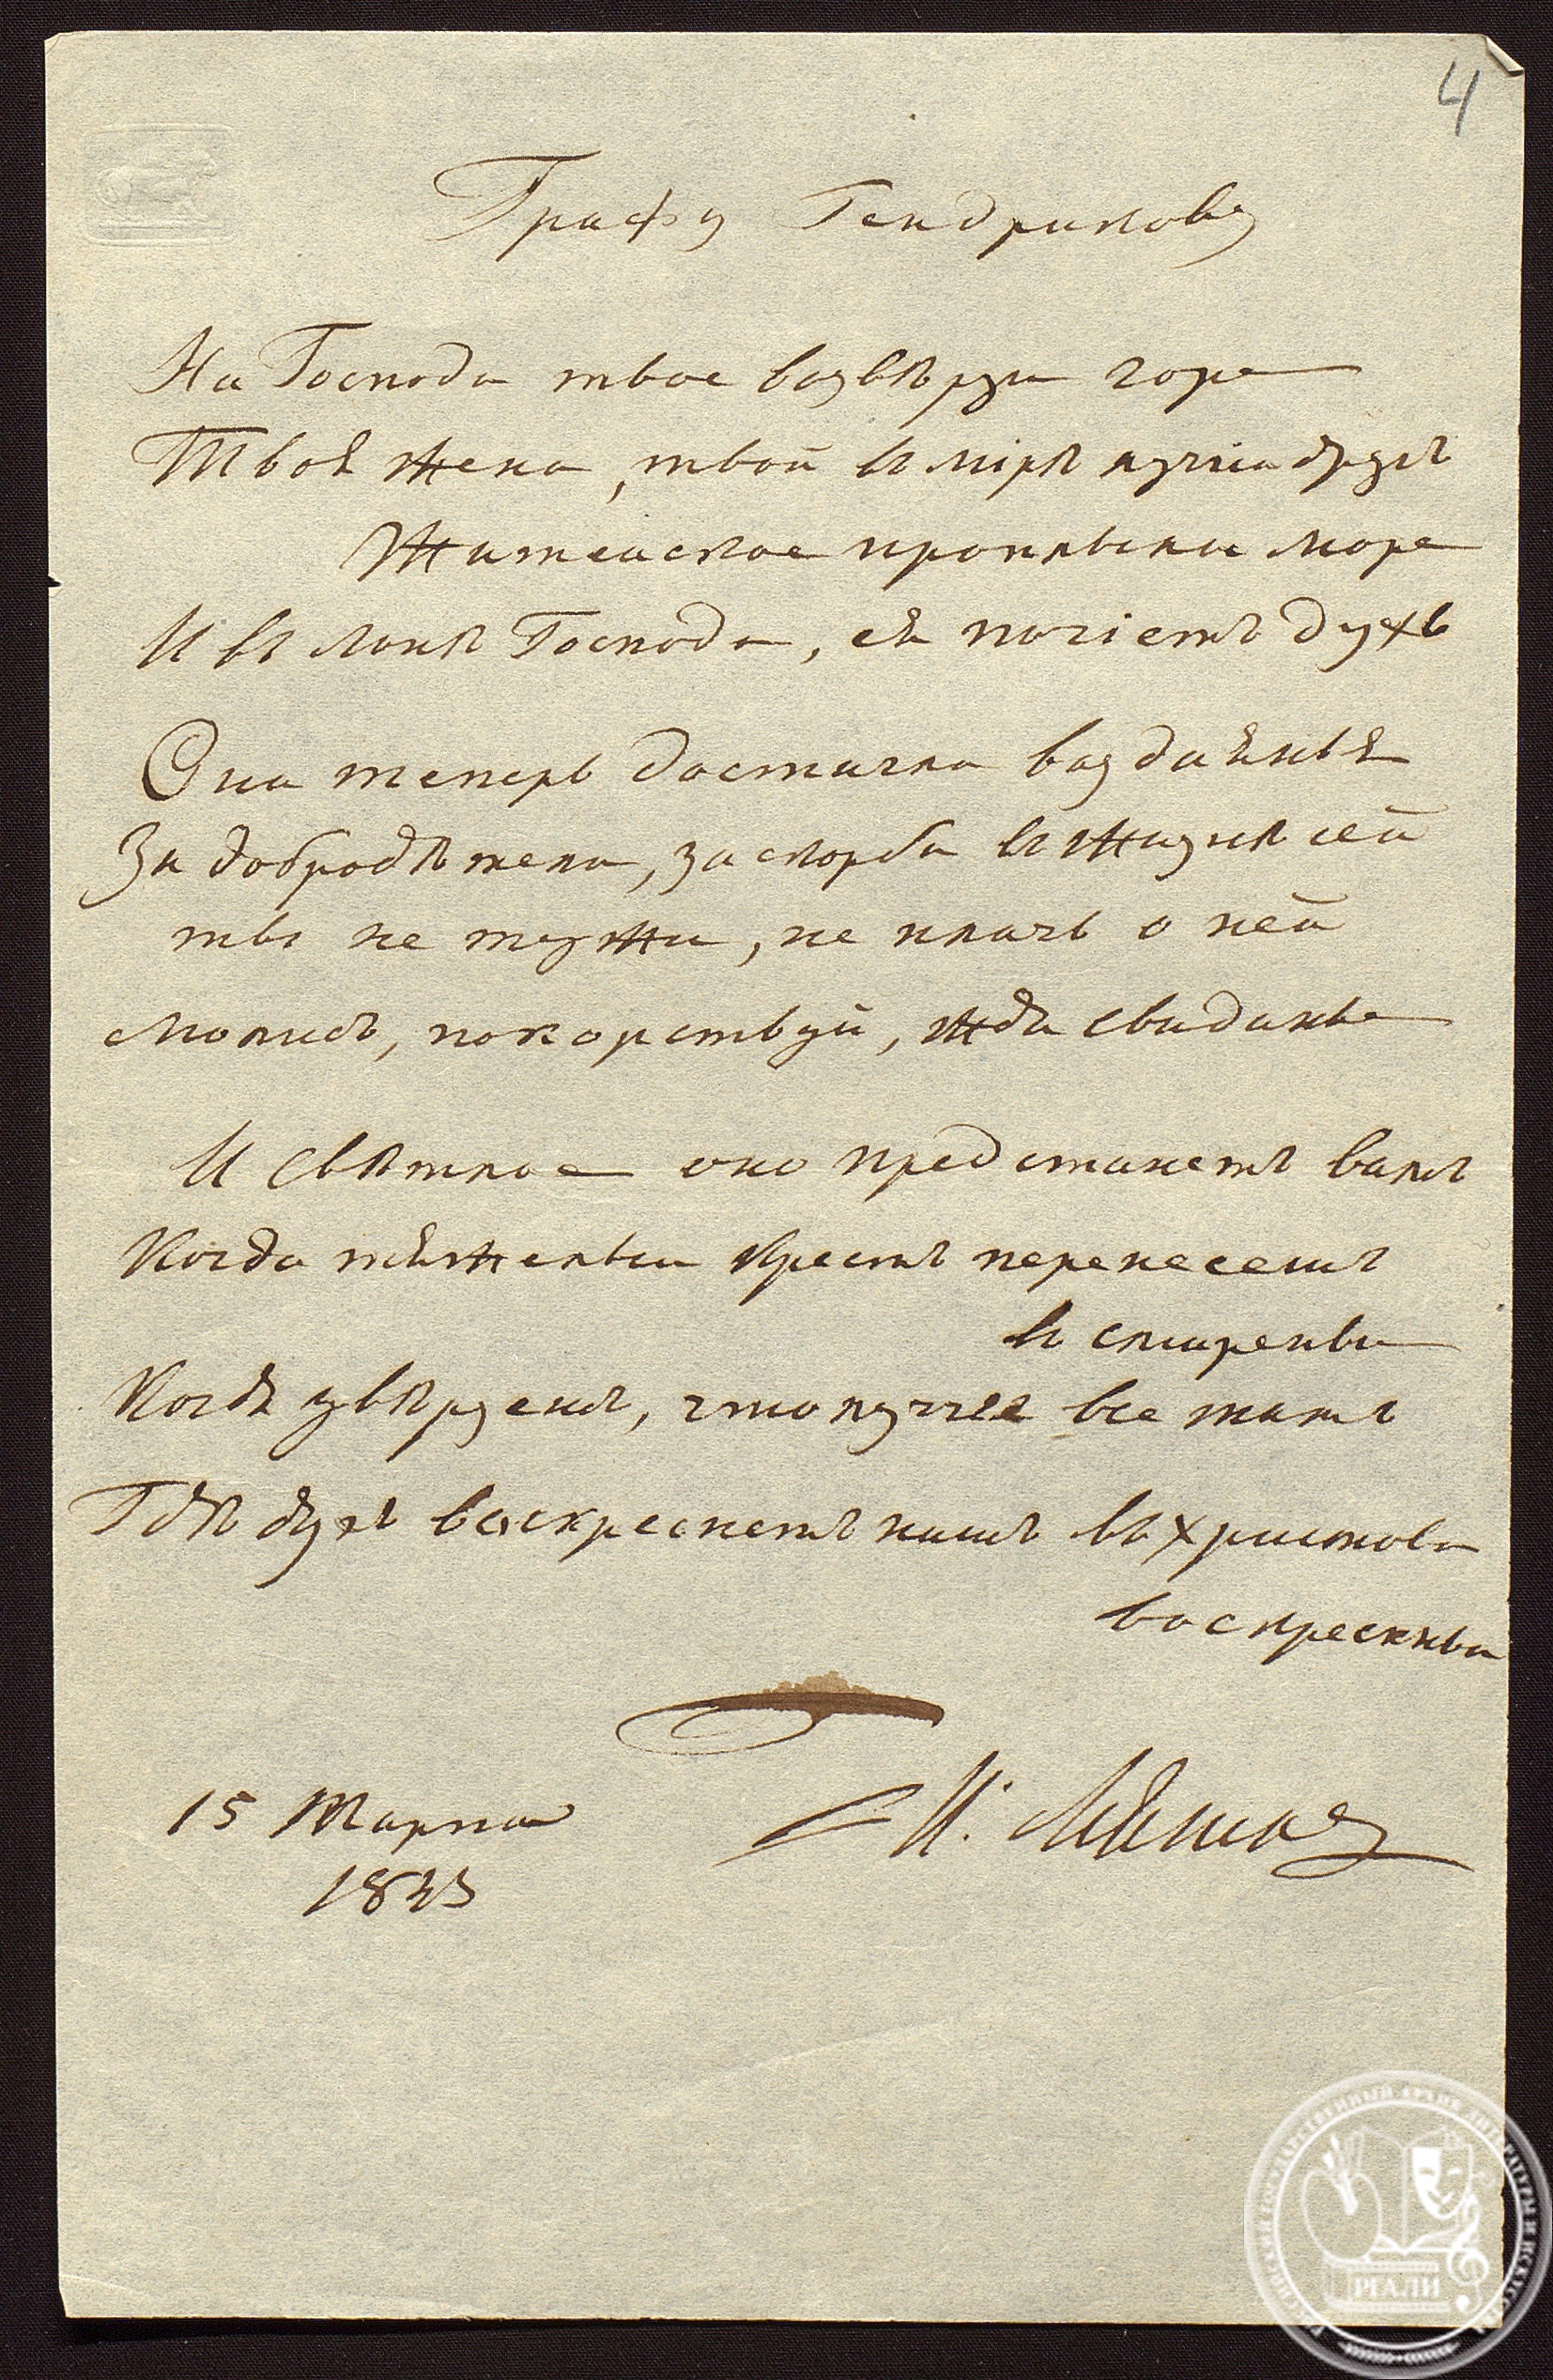 4
Графу Гендрикову
На Господа твое возвѣрзи горе
Твоя жена, твой въ мірѣ лучіи другъ
Житеиское проплыли море
И въ лонѣ Господа, ея почіетъ духъ
Она теперь достигла воздаянья
За добродѣтели, за скорби въ жизнѣ сей
ты не тужи, не плачь о ней
Молись, покорствуй, жди свиданье
И свѣтлое оно предстанетъ вамъ
Когда тяжелыи крестъ перенесешъ
въ смиреньи
Когда увѣрзенъ, что лучше все тамъ
Гдѣ духъ воскреснетъ нашъ въ христови
воскресеньи
15 Марта
И. Мятлев
РГАЛИ